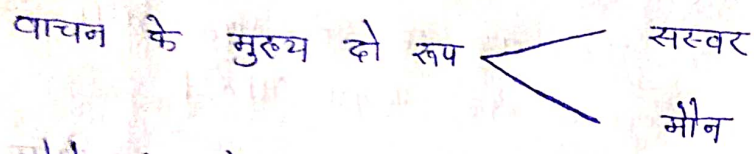 वाचन के मुख्य दो रूप
सस्वर
मौन